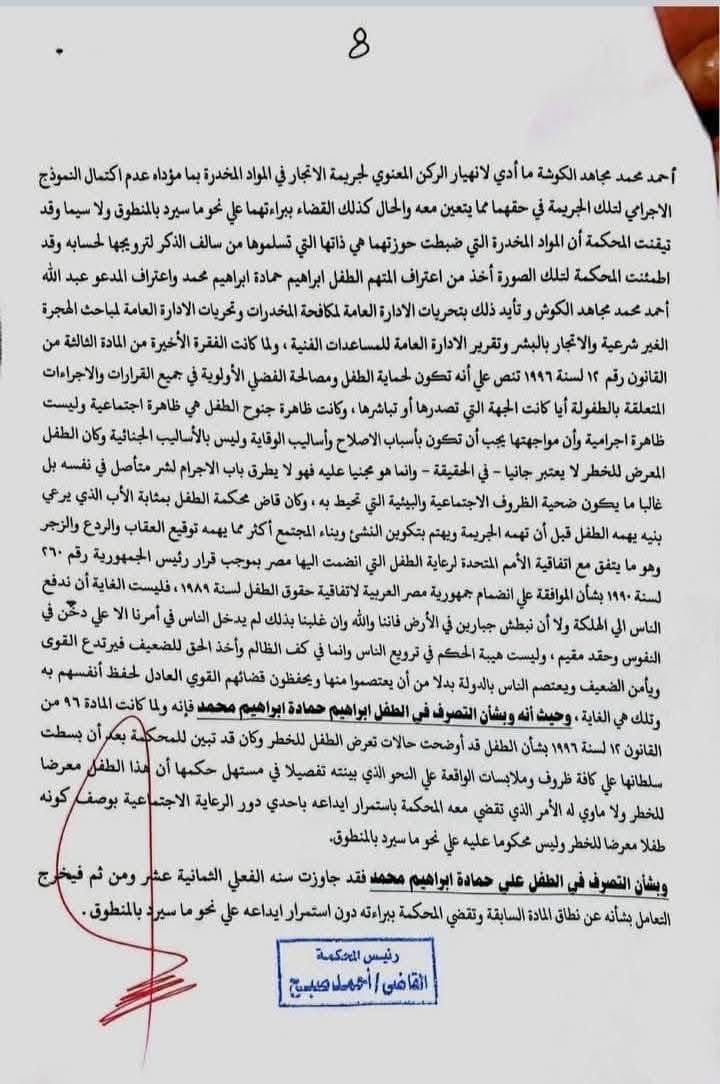 8
أحمد محمد مجاهد الكوشة ما أدي لانهيار الركن المعنوي لجريمة الاتجار في المواد المخدرة بما مؤداه عدم اكتمال النموذج
الاجرامي لتلك الجريمة في حقهما مما يتعين معه والحال كذلك القضاء ببراءتهما علي نحو ما سيرد بالمنطوق ولا سيما وقد
تيقنت المحكمة أن المواد المخدرة التي ضبطت حوزتهما هي ذاتها التي تسلموها من سالف الذكر لترويجها لحسابه وقد
اطمئنت المحكمة لتلك الصورة أخذ من اعتراف المتهم الطفل ابراهيم حمادة ابراهيم محمد واعتراف المدعو عبد الله
أحمد محمد مجاهد الكوش و تأيد ذلك بتحريات الادارة العامة لمكافحة المخدرات وتحريات الادارة العامة لمباحث الهجرة
الغير شرعية والاتجار بالبشر وتقرير الادارة العامة للمساعدات الفنية ، ولما كانت الفقرة الأخيرة من المادة الثالثة من
القانون رقم ١٢ لسنة ١٩٩٦ تنص علي أنه تكون لحماية الطفل ومصالحة الفضلي الأولوية في جميع القرارات والاجراءات
المتعلقة بالطفولة أيا كانت الجهة التي تصدرها أو تباشرها ، وكانت ظاهرة جنوح الطفل هي ظاهرة اجتماعية وليست
ظاهرة اجرامية وأن مواجهتها يجب أن تكون بأسباب الاصلاح وأساليب الوقاية وليس بالأساليب الجنائية وكان الطفل
المعرض للخطر لا يعتبر جانيا - في الحقيقة - وانما هو مجنيا عليه فهو لا يطرق باب الاجرام لشر متأصل في نفسه بل
غالبا ما يكون ضحية الظروف الاجتماعية والبيئية التي تحيط به ، وكان قاض محكمة الطفل بمثابة الأب الذي يرعي
بنيه يهمه الطفل قبل أن تهمه الجريمة ويهتم بتكوين النشئ وبناء المجتمع أكثر مما يهمه توقيع العقاب والردع والزجر
وهو ما يتفق مع اتفاقية الأمم المتحدة لرعاية الطفل التي انضمت اليها مصر بموجب قرار رئيس الجمهورية رقم ٢٦٠
لسنة ١٩٩٠ بشأن الموافقة علي انضمام جمهورية مصر العربية لاتفاقية حقوق الطفل لسنة ١٩٨٩ ، فليست الغاية أن ندفع
الناس الي الهلكة ولا أن نبطش جبارين في الأرض فاننا والله وان غلبنا بذلك لم يدخل الناس في أمرنا الا علي دخن في
النفوس وحقد مقيم ، وليست هيبة الحكم في ترويع الناس وانما في كف الظالم وأخذ الحق للضعيف فيرتدع القوى
ويأمن الضعيف ويعتصم الناس بالدولة بدلا من أن يعتصموا منها ويحفظون قضائهم القوي العادل لحفظ أنفسهم به
وتلك هي الغاية ، وحيث أنه وبشأن التصرف في الطفل ابراهيم حمادة ابراهيم محمد فإنه ولما كانت المادة ٩٦ من
القانون ١٢ لسنة ١٩٩٦ بشأن الطفل قد أوضحت حالات تعرض الطفل للخطر وكان قد تبين للمحكمة بعد أن بسطت
سلطانها علي كافة ظروف وملابسات الواقعة علي النحو الذي بينته تفصيلا في مستهل حكمها أن هذا الطفل معرضا
للخطر ولا ماوي له الأمر الذي تقضي معه المحكمة باستمرار ايداعه بأحدي دور الرعاية الاجتماعية بوصف كونه
طفلا معرضا للخطر وليس محكوما عليه علي نحو ما سيرد بالمنطوق.
وبشأن التصرف في الطفل علي حمادة ابراهيم محمد فقد جاوزت سنه الفعلي الثمانية عشر ومن ثم فيخرج
التعامل بشأنه عن نطاق المادة السابقة وتقضي المحكمة ببراءته دون استمرار ايداعه علي نحو ما سيرد بالمنطوق .
رئيس المحكمة
القاضى / أحمد صبيح